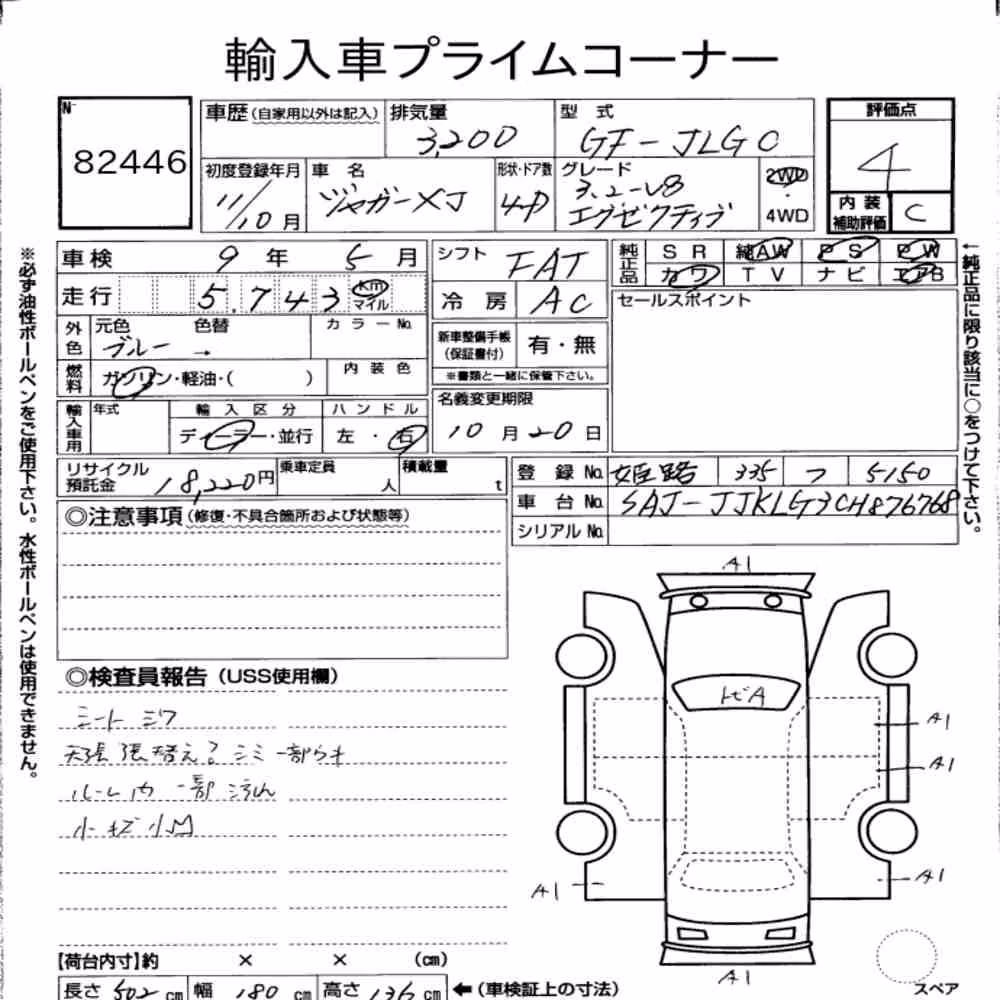 輸入車プライムコーナー
No
82446
車歴 (自家用以外は記入)
排気量
3,200
型式
GF-JLGC
評価点
4
初度登録年月
11/10月
車名
ジャガーXJ
形状・ドア数
4D
グレード
3.2-V8
エグゼクティブ
2WD
・
4WD
内装
補助評価
C
車検 9年 5月
シフト FAT
純正品
SR 純AW PS PW
カワ TV ナビ エアB
走行 5,743 km マイル
冷房 AC
セールスポイント
外色
元色 色替 カラーNo.
ブルー →
新車整備手帳
(保証書付)
有・無
※書類と一緒に保管下さい。
燃料
ガソリン・軽油・( )
内装色
輸入車用
年式
輸入区分
ディーラー・並行
ハンドル
左・右
名義変更期限
10月20日
リサイクル
預託金
18,220円
乗車定員
人
積載量
t
登録No. 姫路 335 フ 5150
車台No. SAJ-JJKLG3CH876768
シリアルNo.
◎注意事項 (修復・不具合箇所および状態等)
◎検査員報告 (USS使用欄)
シートシワ
天張 張替え? シミ 一部うキ
ルーム内 一部 汚れ
小キズ 小凹
A1
トビA
A1
A1
A1
A1
A1
スペア
【荷台内寸】約 × × (cm)
長さ 502 cm 幅 180 cm 高さ 136 cm ←(車検証上の寸法)
※必ず油性ボールペンをご使用下さい。水性ボールペンは使用できません。
←純正品に限り該当に○をつけて下さい。